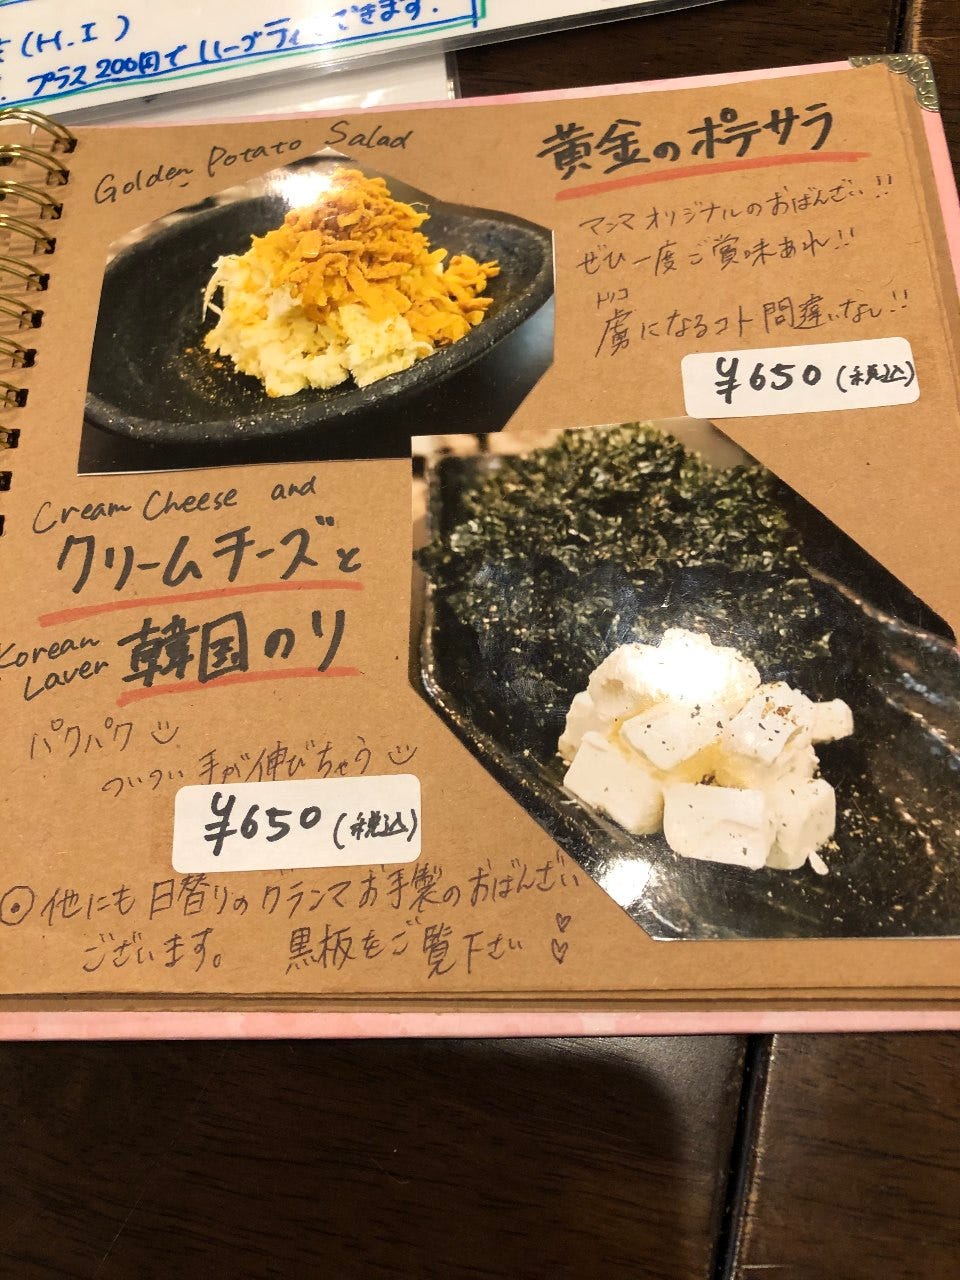 (H.I)
プラス200円でハーブティーできます.
Golden Potato Salad
黄金のポテサラ
マンマオリジナルのおばんざい!!
ぜひ一度ご賞味あれ!!
トリコ
虜になるコト間違いなし!!
¥650(税込)
Cream Cheese and
クリームチーズと
Korean
Laver
韓国のり
パクパク
ついつい手が伸びちゃう
¥650(税込)
⦿他にも日替りのグランマお手製のおばんざい
ございます。 黒板をご覧下さい♡♡